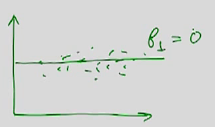 β₁ = 0